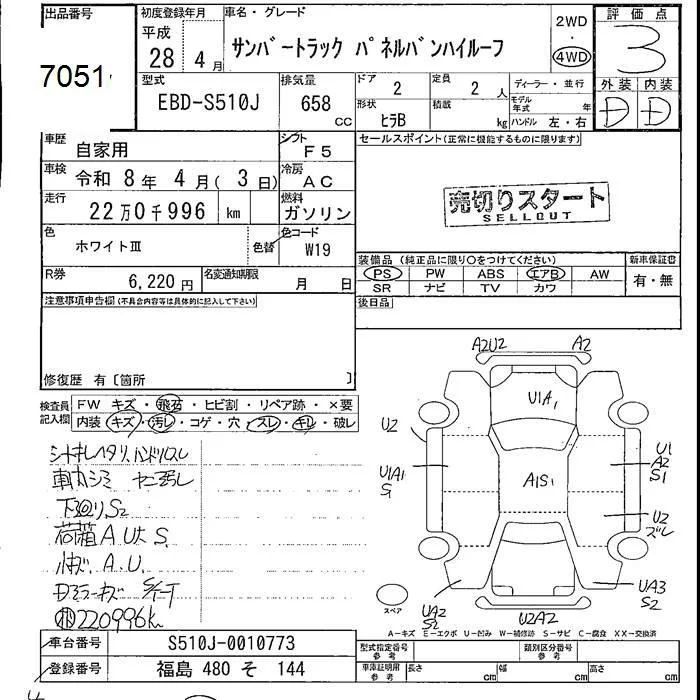 出品番号
7051
初度登録年月
平成
28 年 4 月
車名・グレード
サンバートラック パネルバンハイルーフ
2WD
・
4WD
評価点
3
型式
EBD-S510J
排気量
658 cc
ドア
2
形状
ヒラB
定員
2 人
積載
kg
ディーラー・並行
モデル年式 年
ハンドル 左・右
外装 内装
D D
車歴
自家用
シフト
F5
セールスポイント(正常に機能するものに限ります)
売切りスタート
SELLOUT
車検
令和 8 年 4 月 ( 3 日)
冷房
AC
走行
22 万 0 千 996 km
燃料
ガソリン
色
ホワイトⅢ
色替
色コード
W19
装備品 (純正品に限り○をつけてください)
新車保証書
PS PW ABS エアB AW
SR ナビ TV カワ
有・無
R券
6,220円
名変通知期限
月 日
後日品
注意事項申告欄(不具合内容等は具体的に記入して下さい)
修復歴 有〔箇所 〕
検査員記入欄
FW キズ・飛石・ヒビ割・リペア跡・×要
内装 キズ・汚レ・コゲ・穴・スレ・キレ・破レ
シートキレヘタリ,ハンドルスレ
車内シミ ヤニ汚レ
下廻リ S2
荷箱 A U大 S
A.U.
220996k
A2U2
A2
U1A1
U2
U1A1
S1
A1S1
U1
A2
S1
U2
ズレ
スペア
UA2
S2
U2A2
UA3
S2
A-キズ E-エクボ U-凹み W-補修跡 S-サビ C-腐食 XX-交換済
車台番号
S510J-0010773
登録番号
福島 480 そ 144
型式指定番号
参考
類別区分番号
参考
車庫証明用
参考
長さ cm
幅 cm
高さ cm